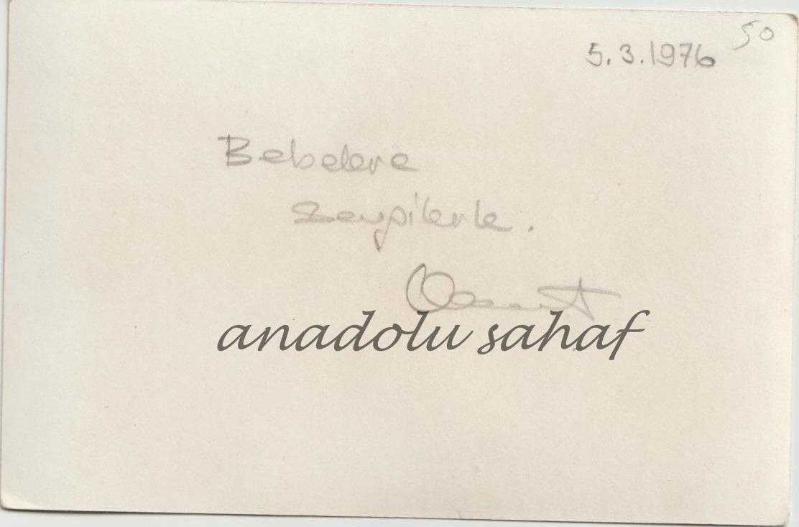 50
5.3.1976
Bebelere
sevgilerle.
anadolu sahaf